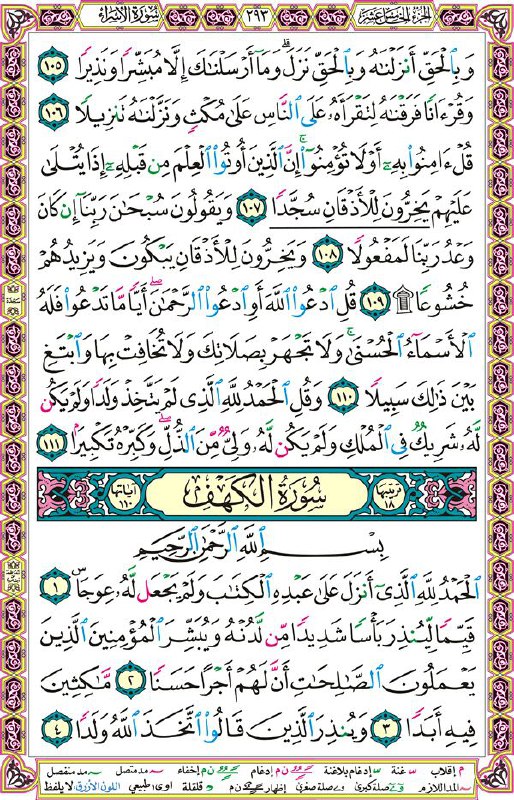 الجزء الخامس عشر ٢٩٣ سورة الإسراء
وَبِٱلْحَقِّ أَنزَلْنَٰهُ وَبِٱلْحَقِّ نَزَلَ ۗ وَمَآ أَرْسَلْنَٰكَ إِلَّا مُبَشِّرًا وَنَذِيرًا ١٠٥
وَقُرْءَانًا فَرَقْنَٰهُ لِتَقْرَأَهُۥ عَلَى ٱلنَّاسِ عَلَىٰ مُكْثٍ وَنَزَّلْنَٰهُ تَنزِيلًا ١٠٦
قُلْ ءَامِنُوا۟ بِهِۦٓ أَوْ لَا تُؤْمِنُوٓا۟ ۚ إِنَّ ٱلَّذِينَ أُوتُوا۟ ٱلْعِلْمَ مِن قَبْلِهِۦٓ إِذَا يُتْلَىٰ
عَلَيْهِمْ يَخِرُّونَ لِلْأَذْقَانِ سُجَّدًا ١٠٧ وَيَقُولُونَ سُبْحَٰنَ رَبِّنَآ إِن كَانَ
وَعْدُ رَبِّنَا لَمَفْعُولًا ١٠٨ وَيَخِرُّونَ لِلْأَذْقَانِ يَبْكُونَ وَيَزِيدُهُمْ
خُشُوعًا ۩ ١٠٩ قُلِ ٱدْعُوا۟ ٱللَّهَ أَوِ ٱدْعُوا۟ ٱلرَّحْمَٰنَ ۖ أَيًّا مَّا تَدْعُوا۟ فَلَهُ
ٱلْأَسْمَآءُ ٱلْحُسْنَىٰ ۚ وَلَا تَجْهَرْ بِصَلَاتِكَ وَلَا تُخَافِتْ بِهَا وَٱبْتَغِ
بَيْنَ ذَٰلِكَ سَبِيلًا ١١٠ وَقُلِ ٱلْحَمْدُ لِلَّهِ ٱلَّذِى لَمْ يَتَّخِذْ وَلَدًا وَلَمْ يَكُن
لَّهُۥ شَرِيكٌ فِى ٱلْمُلْكِ وَلَمْ يَكُن لَّهُۥ وَلِىٌّ مِّنَ ٱلذُّلِّ ۖ وَكَبِّرْهُ تَكْبِيرًۢا ١١١
ترتيبها ١٨ سُورَةُ الكَهْفِ آياتها ١١٠
بِسْمِ ٱللَّهِ ٱلرَّحْمَٰنِ ٱلرَّحِيمِ
ٱلْحَمْدُ لِلَّهِ ٱلَّذِىٓ أَنزَلَ عَلَىٰ عَبْدِهِ ٱلْكِتَٰبَ وَلَمْ يَجْعَل لَّهُۥ عِوَجَا ۜ ١
قَيِّمًا لِّيُنذِرَ بَأْسًا شَدِيدًا مِّن لَّدُنْهُ وَيُبَشِّرَ ٱلْمُؤْمِنِينَ ٱلَّذِينَ
يَعْمَلُونَ ٱلصَّٰلِحَٰتِ أَنَّ لَهُمْ أَجْرًا حَسَنًا ٢ مَّٰكِثِينَ
فِيهِ أَبَدًا ٣ وَيُنذِرَ ٱلَّذِينَ قَالُوا۟ ٱتَّخَذَ ٱللَّهُ وَلَدًا ٤
م إقلاب غنة إدغام بلاغنة ن م إدغام ن م إخفاء مد متصل مد منفصل
المد اللازم صلة كبرى صلة صغرى إظهار ن م قلقلة اوى: طبيعي اللون الأزرق لا يلفظ